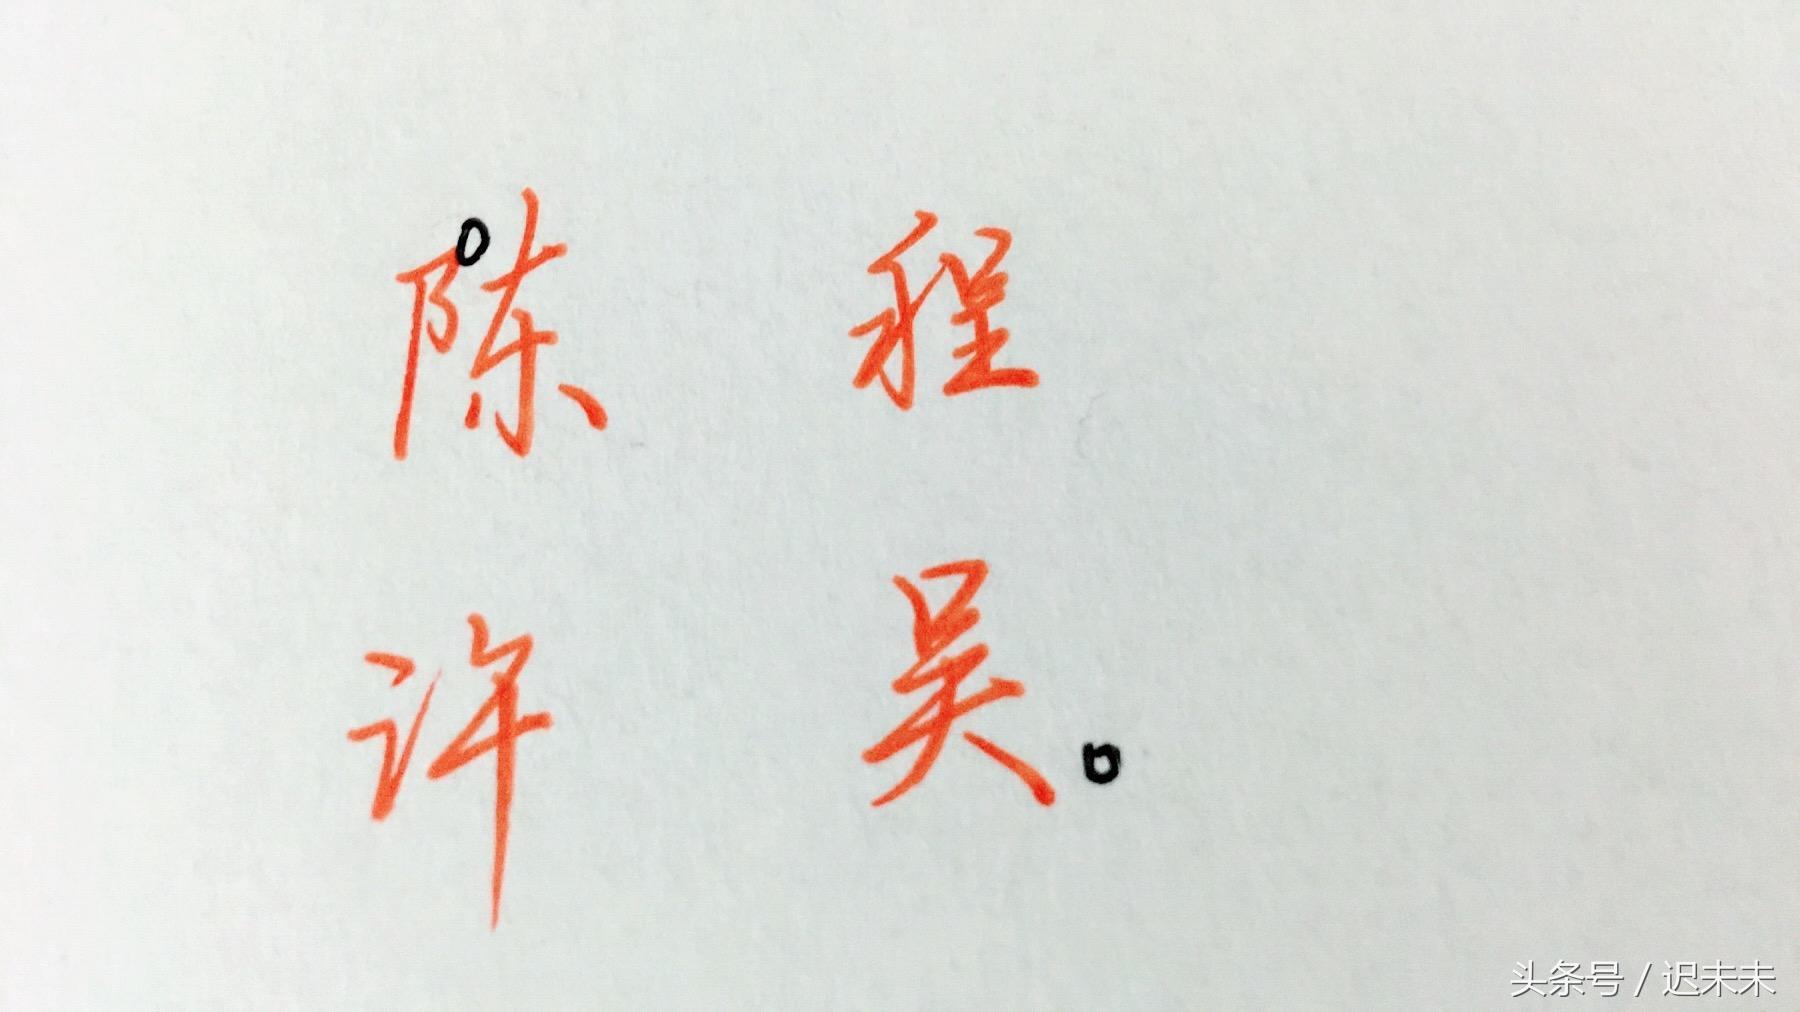 陈 程
许 吴
头条号 / 迟未未